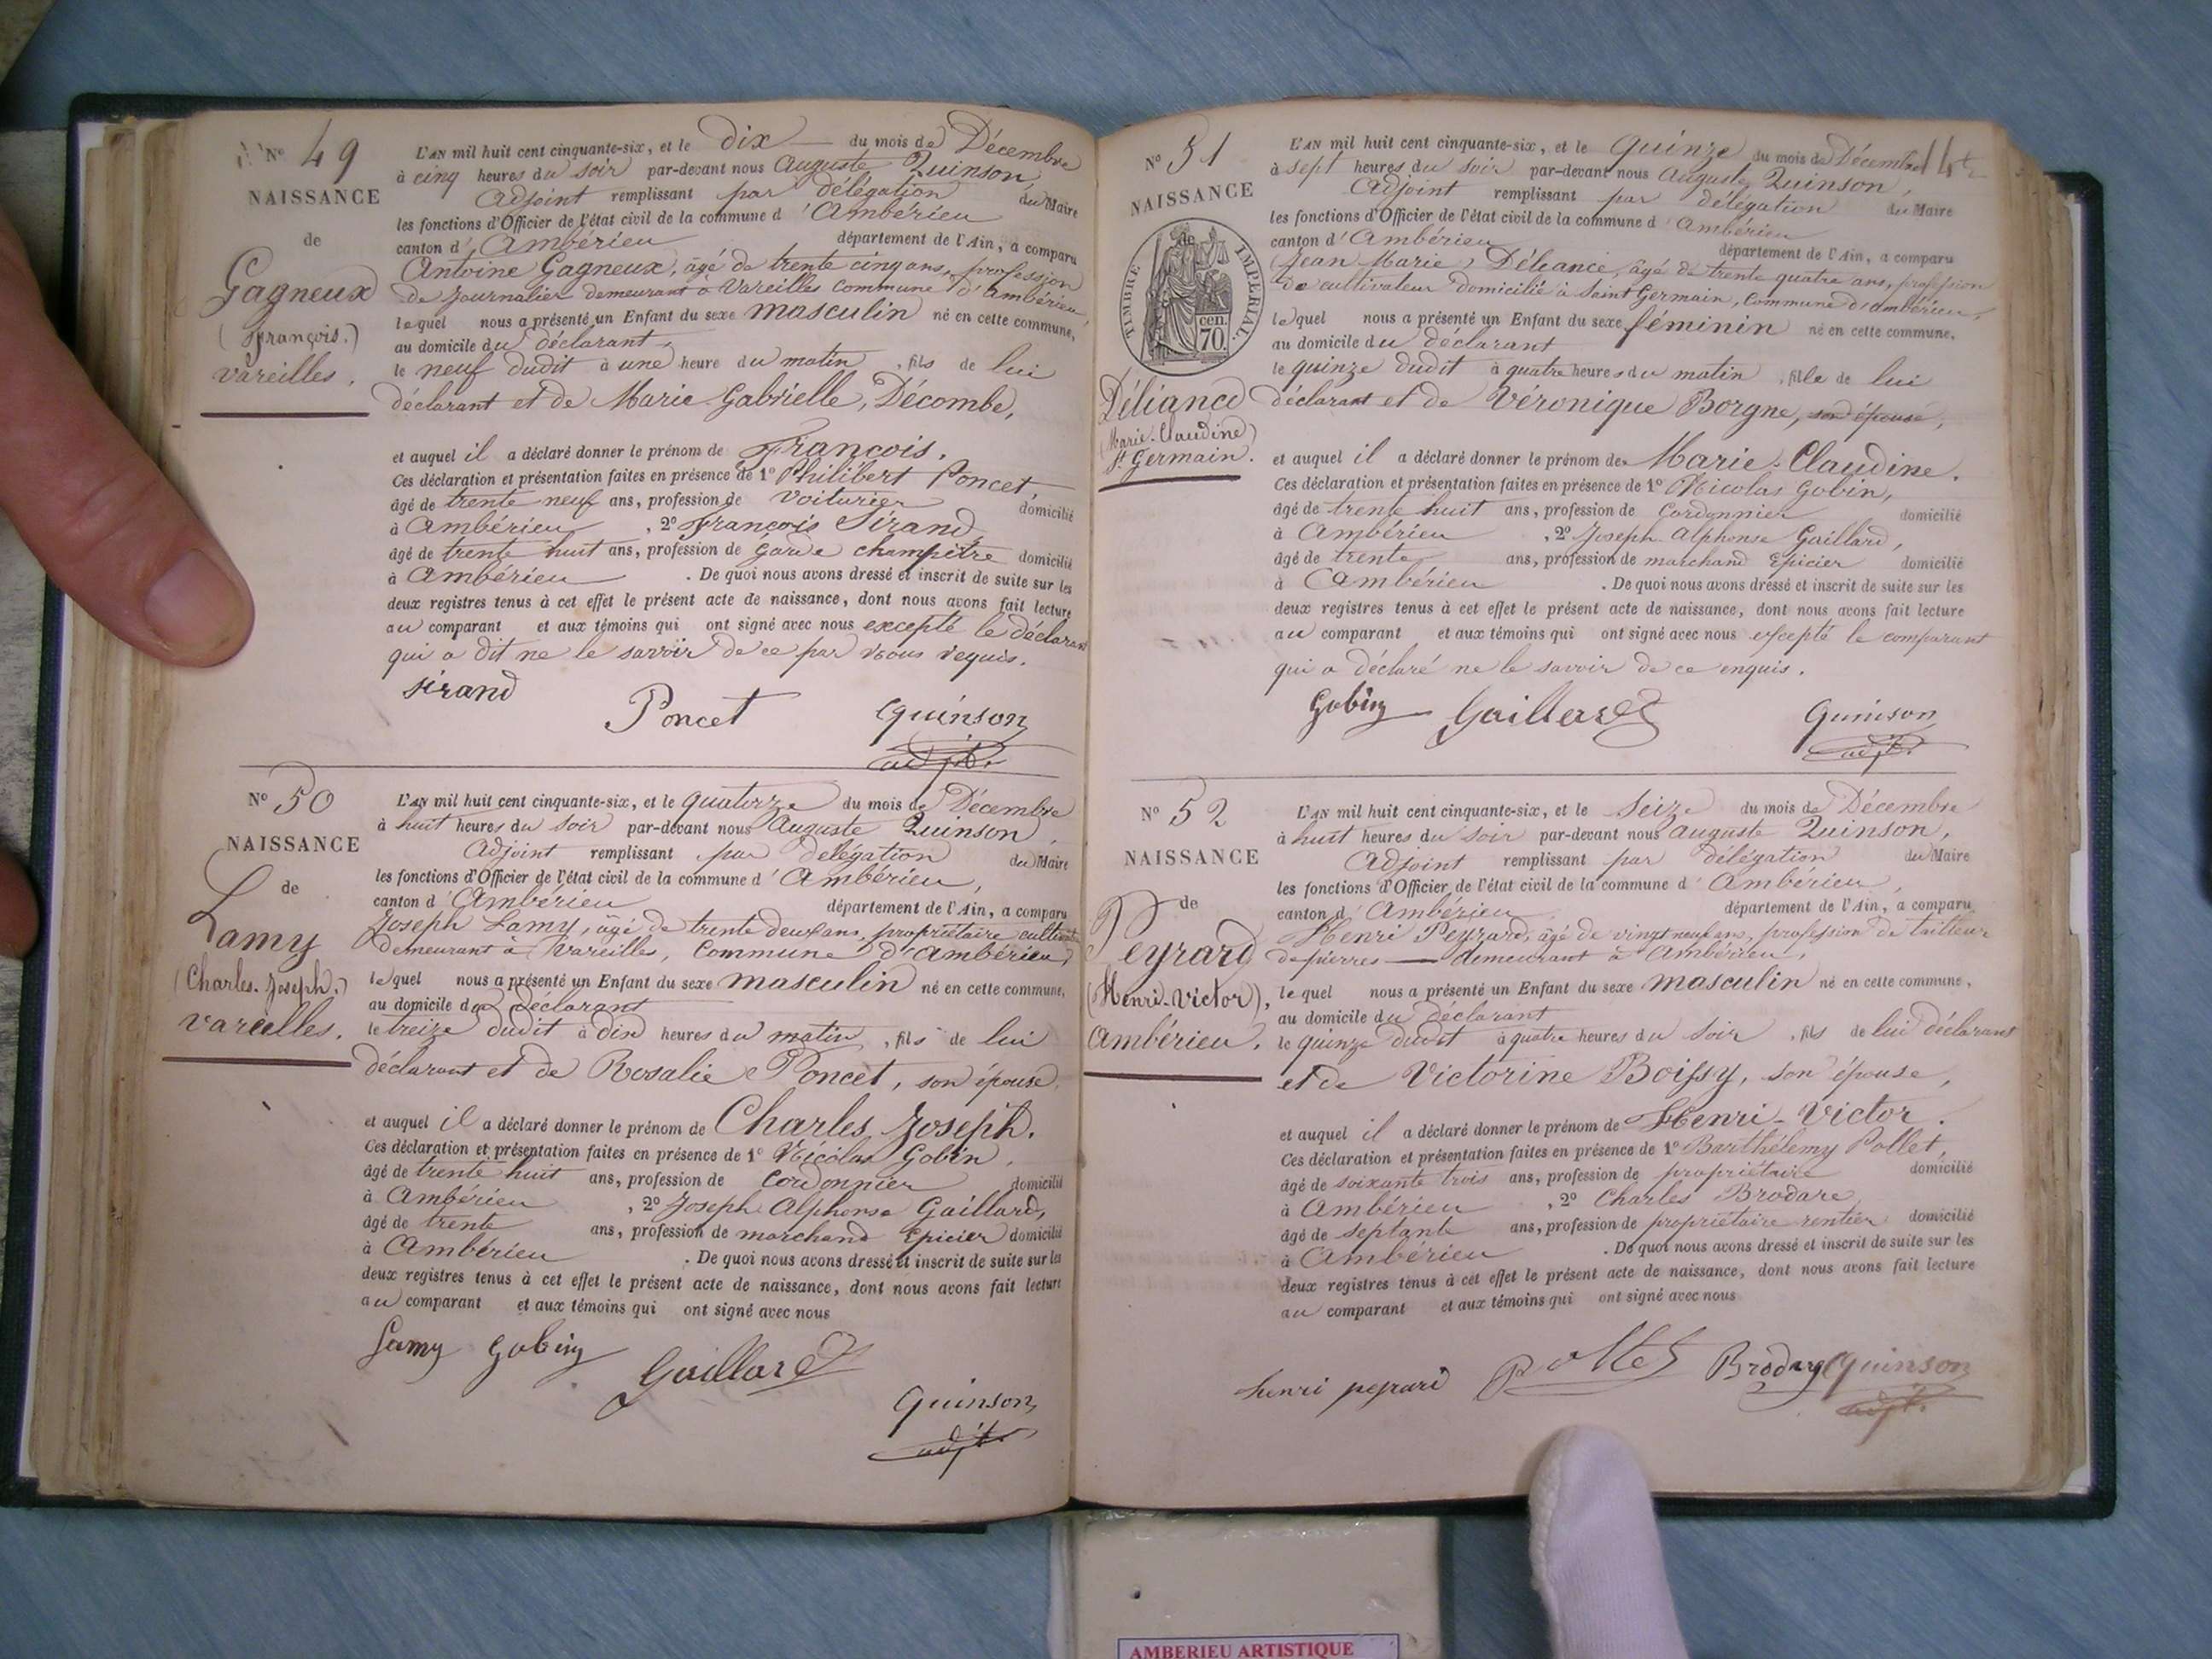 N° 49
NAISSANCE
de
Gagneux
(François.)
Vareilles.
L'AN mil huit cent cinquante-six, et le dix du mois de Décembre
à cinq heures du soir par-devant nous Auguste Quinson,
Adjoint remplissant par délégation du Maire
les fonctions d'Officier de l'état civil de la commune d'Ambérieu
canton d'Ambérieu département de l'Ain, a comparu
Antoine Gagneux, âgé de trente cinq ans, profession
de journalier demeurant à Vareilles commune d'Ambérieu,
lequel nous a présenté un Enfant du sexe masculin né en cette commune,
au domicile du déclarant,
le neuf dudit à une heure du matin, fils de lui
déclarant et de Marie Gabrielle, Décombe,
et auquel il a déclaré donner le prénom de François.
Ces déclaration et présentation faites en présence de 1° Philibert Poncet,
âgé de trente neuf ans, profession de Voiturier domicilié
à Ambérieu, 2° François Sirand,
âgé de trente huit ans, profession de Garde champêtre domicilié
à Ambérieu. De quoi nous avons dressé et inscrit de suite sur les
deux registres tenus à cet effet le présent acte de naissance, dont nous avons fait lecture
au comparant et aux témoins qui ont signé avec nous excepté le déclarant
qui a dit ne le savoir de ce par nous requis.
Sirand Poncet Quinson
adjt.
N° 50
NAISSANCE
de
Lamy
(Charles-Joseph.)
Vareilles.
L'AN mil huit cent cinquante-six, et le quatorze du mois de Décembre
à huit heures du soir par-devant nous Auguste Quinson,
Adjoint remplissant par delégation du Maire
les fonctions d'Officier de l'état civil de la commune d'Ambérieu,
canton d'Ambérieu département de l'Ain, a comparu
Joseph Lamy, âgé de trente deux ans, propriétaire cultivat
demeurant à Vareilles, Commune d'Ambérieu,
lequel nous a présenté un Enfant du sexe masculin né en cette commune,
au domicile du déclarant
le treize dudit à dix heures du matin, fils de lui
déclarant et de Rosalie Poncet, son épouse,
et auquel il a déclaré donner le prénom de Charles Joseph.
Ces déclaration et présentation faites en présence de 1° Nicolas Gobin,
âgé de trente huit ans, profession de Cordonnier domicilié
à Ambérieu, 2° Joseph Alphonse Gaillard,
âgé de trente ans, profession de marchand Epicier domicilié
à Ambérieu. De quoi nous avons dressé et inscrit de suite sur les
deux registres tenus à cet effet le présent acte de naissance, dont nous avons fait lecture
au comparant et aux témoins qui ont signé avec nous
Lamy Gobin Gaillard
Quinson
adjt.
N° 51
NAISSANCE
de
TIMBRE IMPERIAL.
70. cen.
Déliance
(Marie-Claudine)
St. Germain.
L'AN mil huit cent cinquante-six, et le Quinze du mois de Décembre
à sept heures du soir par-devant nous Auguste Quinson,
Adjoint remplissant par délégation du Maire
les fonctions d'Officier de l'état civil de la commune d'Ambérieu
canton d'Ambérieu département de l'Ain, a comparu
Jean Marie Déliance, âgé de trente quatre ans, profession
de cultivateur domicilié à Saint Germain, Commune d'ambérieu,
lequel nous a présenté un Enfant du sexe féminin né en cette commune,
au domicile du déclarant
le quinze dudit à quatre heures du matin, fille de lui
déclarant et de Véronique Borgne, son épouse,
et auquel il a déclaré donner le prénom de Marie-Claudine.
Ces déclaration et présentation faites en présence de 1° Nicolas Gobin,
âgé de trente huit ans, profession de Cordonnier domicilié
à Ambérieu, 2° Joseph Alphonse Gaillard,
âgé de trente ans, profession de marchand Epicier domicilié
à Ambérieu. De quoi nous avons dressé et inscrit de suite sur les
deux registres tenus à cet effet le présent acte de naissance, dont nous avons fait lecture
au comparant et aux témoins qui ont signé avec nous excepté le comparant
qui a déclaré ne le savoir de ce enquis.
Gobin Gaillard Quinson
adjt.
N° 52
NAISSANCE
de
Peyrard
(Henri-Victor),
Ambérieu.
L'AN mil huit cent cinquante-six, et le Seize du mois de Décembre
à huit heures du soir par-devant nous Auguste Quinson,
Adjoint remplissant par délégation du Maire
les fonctions d'Officier de l'état civil de la commune d'Ambérieu,
canton d'Ambérieu département de l'Ain, a comparu
Henri Peyrard, âgé de vingt neuf ans, profession de tailleur
de pierres demeurant à Ambérieu,
lequel nous a présenté un Enfant du sexe masculin né en cette commune,
au domicile du Déclarant
le quinze dudit à quatre heures du soir, fils de lui déclarant
et de Victorine Boissy, son épouse,
et auquel il a déclaré donner le prénom de Henri-Victor.
Ces déclaration et présentation faites en présence de 1° Barthélemy Pollet,
âgé de soixante trois ans, profession de propriétaire domicilié
à Ambérieu, 2° Charles Brodare,
âgé de septante ans, profession de propriétaire rentier domicilié
à Ambérieu. De quoi nous avons dressé et inscrit de suite sur les
deux registres tenus à cet effet le présent acte de naissance, dont nous avons fait lecture
au comparant et aux témoins qui ont signé avec nous
henri peyrard Pollet Quinson
adjt.
AMBERIEU ARTISTIQUE